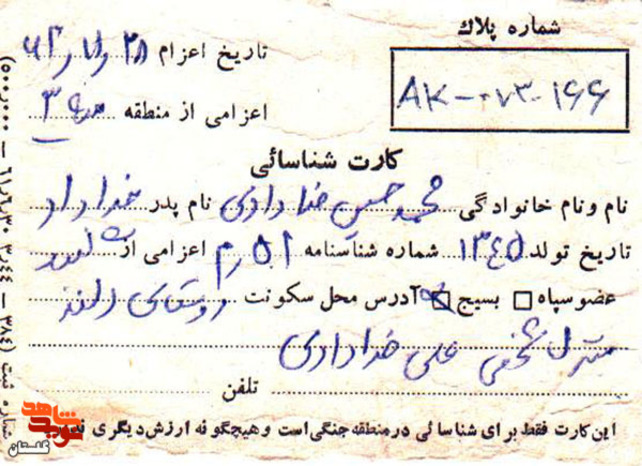 شماره پلاك
AK-۰۷۳-۱۶۶
تاریخ اعزام ۲۸ر۷ر۶۲
اعزامی از منطقه ۳
کارت شناسائی
نام و نام خانوادگی محمد حسین خدادادی نام پدر خداداد
تاریخ تولد ۱۳۴۵ شماره شناسنامه اعزامی از
عضو سپاه □ بسیج ☒ آدرس محل سکونت روستای
منزل شخصی علی خدادادی
تلفن
این کارت فقط برای شناسائی در منطقه جنگی است و هیچگونه ارزش دیگری
نوید شاهد
گلستان